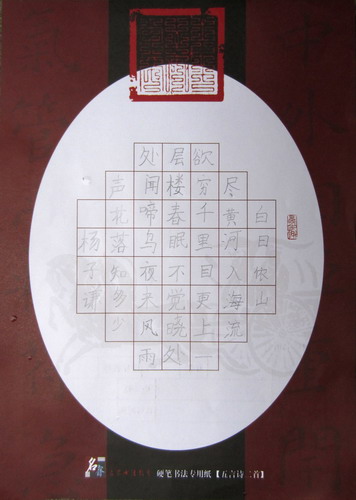 白日依山
尽黄河入海流
欲穷千里目更上一
层楼春眠不觉晓处
处闻啼鸟夜来风雨
声花落知多少
杨子谦
硬笔书法专用纸【五言诗二首】